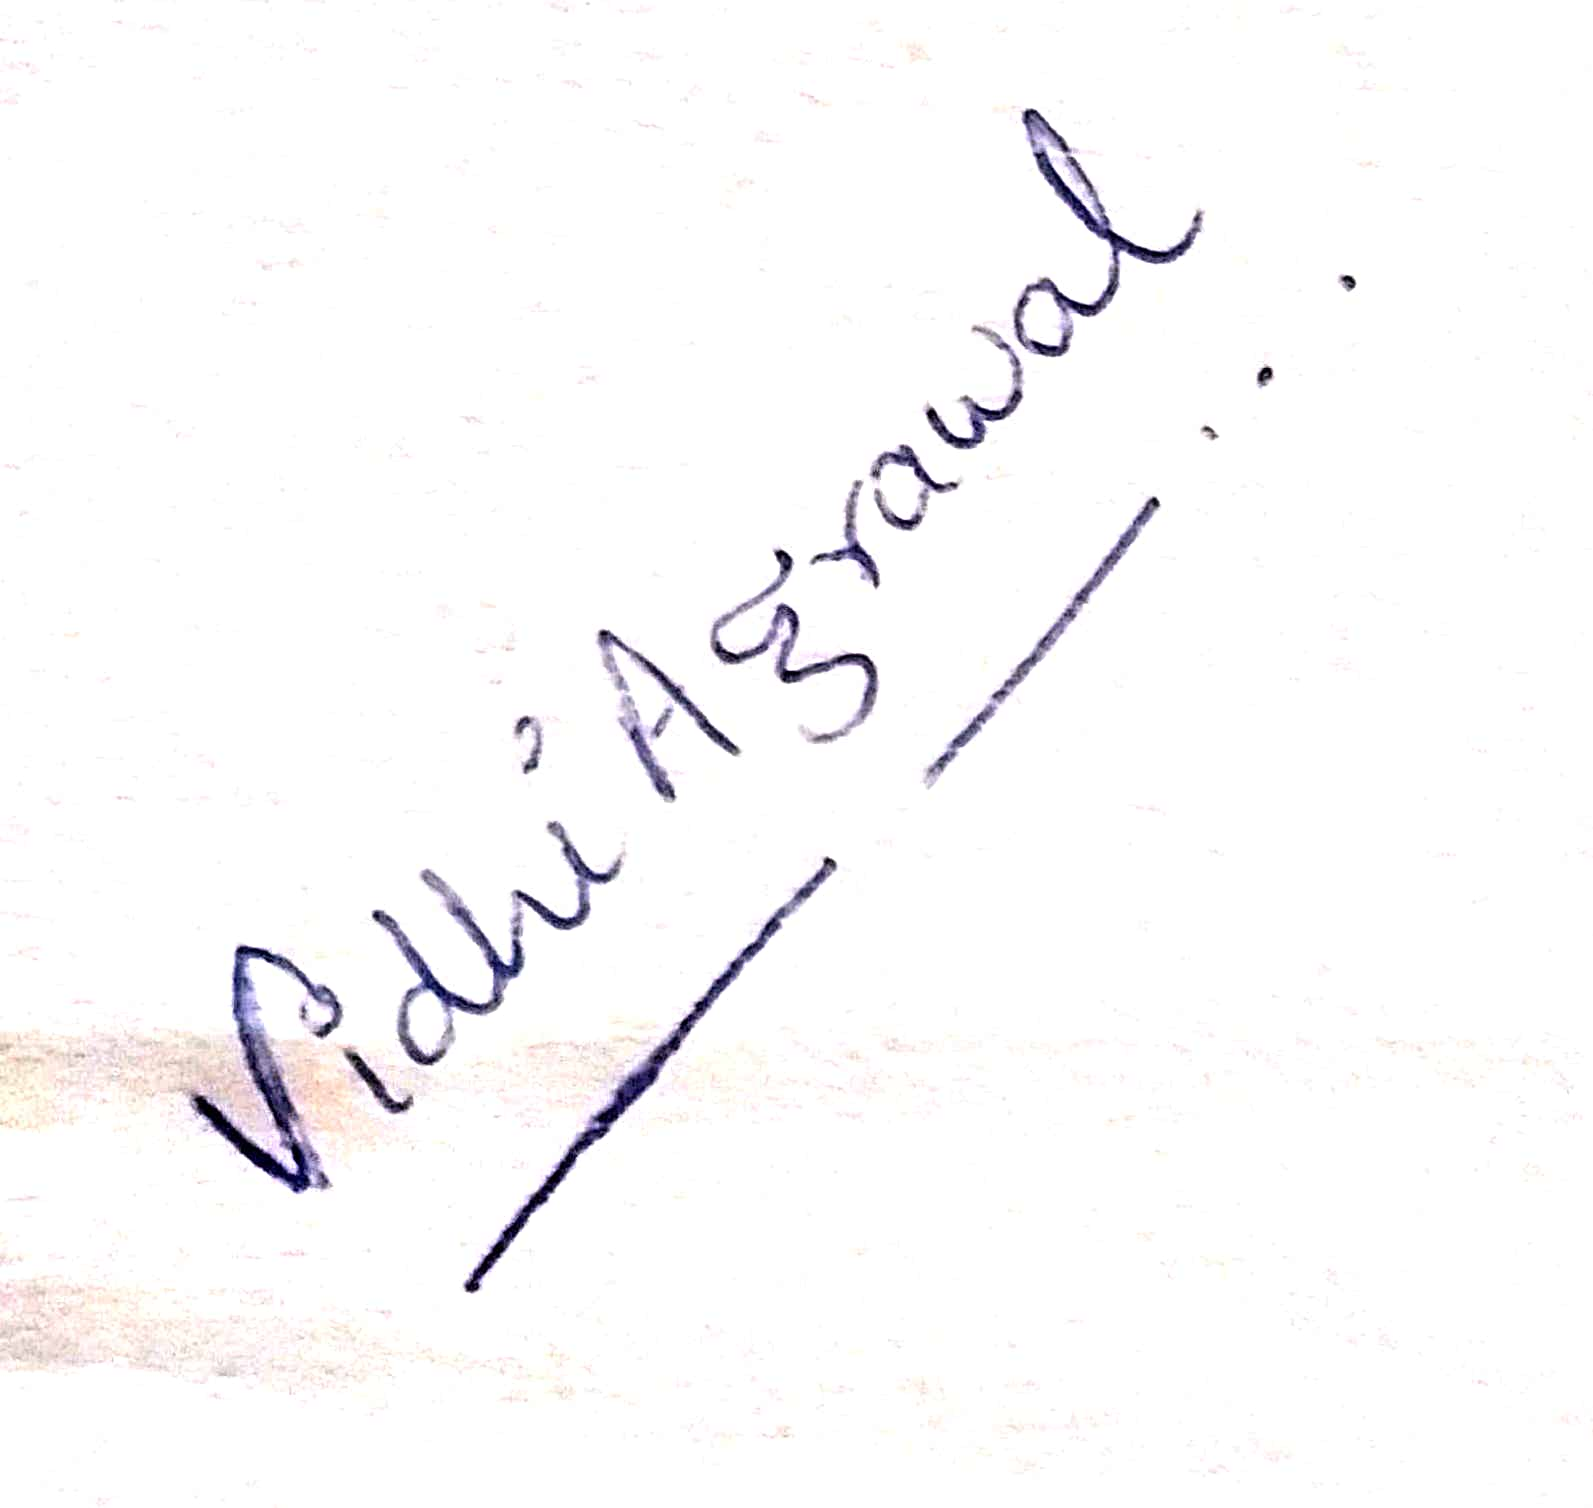 Vidhi Agrawal